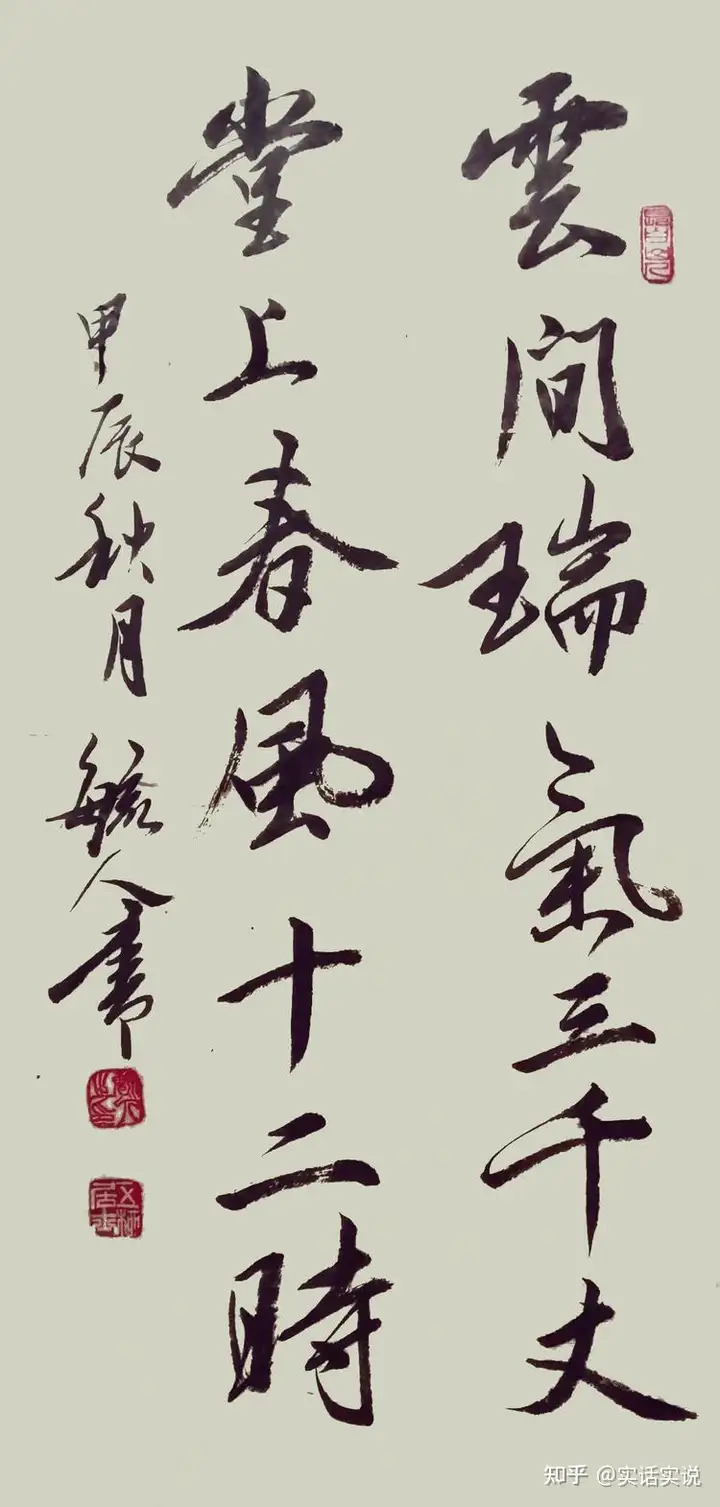 雲間瑞氣三千丈
堂上春風十二時
甲辰秋月毓人書
知乎 @实话实说